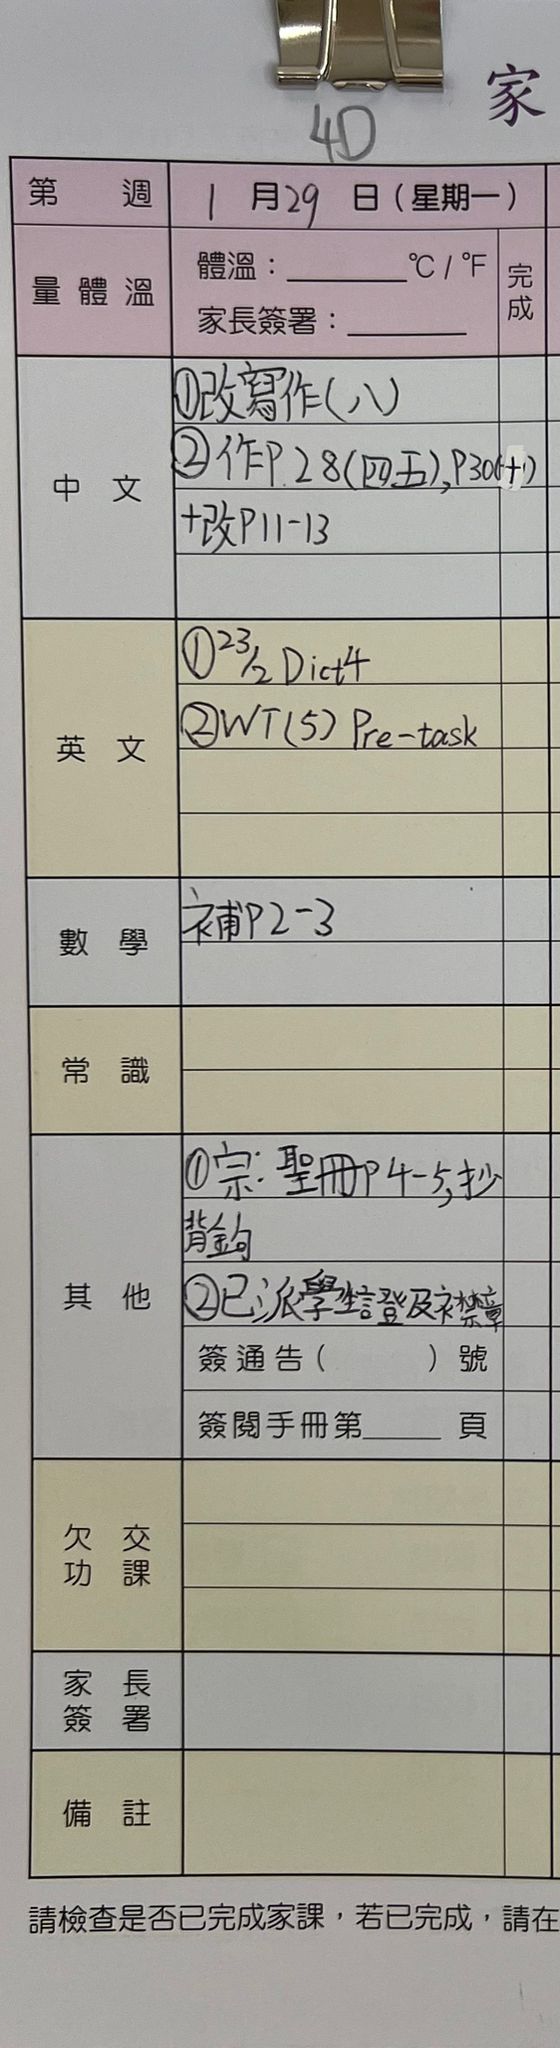 家
4D
第 週 1 月 29 日（星期一）
量體溫 體溫：______℃/℉ 完成
家長簽署：______
中文 ①改寫作(八)
②作P.28(四五),P30(十)
+改P11-13
英文 ①23/2 Dict4
②WT(5) Pre-task
數學 補P2-3
常識
其他 ①宗:聖冊P4-5,抄
背鈎
②已派學生證及襟章
簽通告（ ）號
簽閱手冊第____ 頁
欠交功課
家長簽署
備註
請檢查是否已完成家課，若已完成，請在